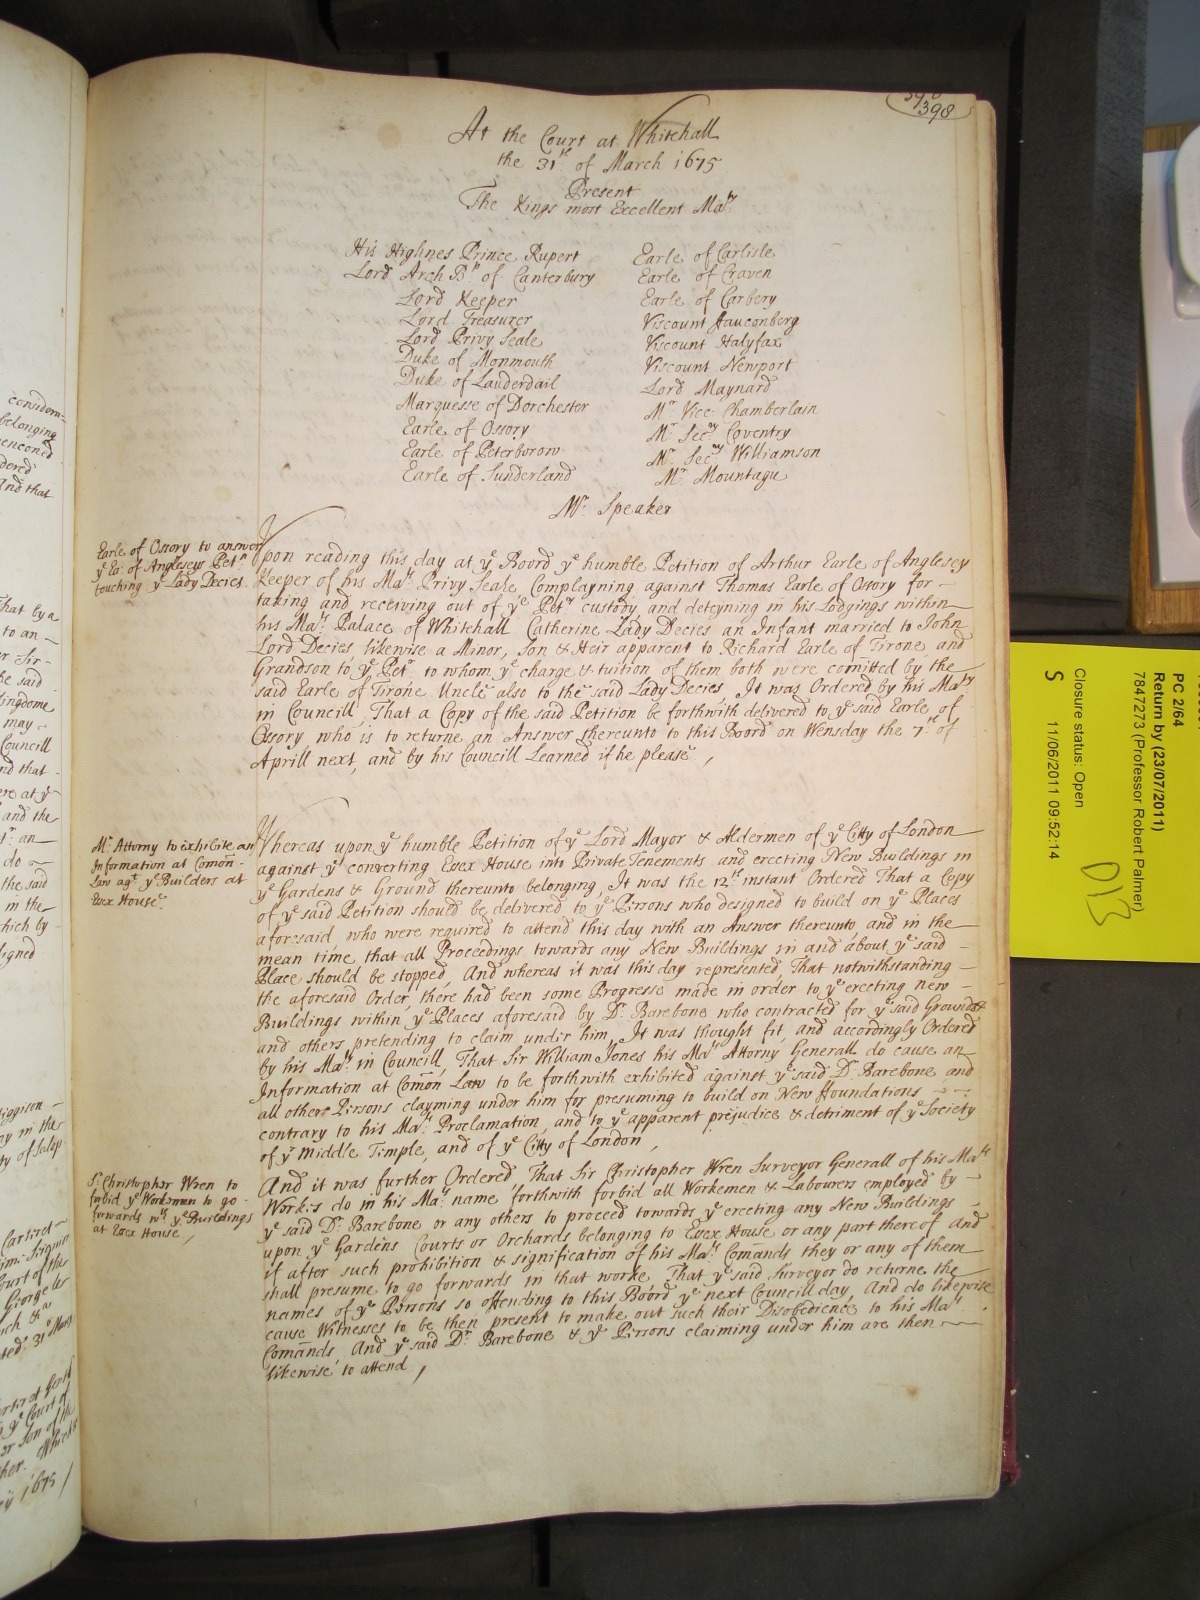 398
At the Court at Whitehall
the 31th of March 1675
Present
The Kings most Excellent Maty
His Highnes Prince Rupert
Lord Arch Bp of Canterbury
Lord Keeper
Lord Treasurer
Lord Privy Seale
Duke of Monmouth
Duke of Lauderdail
Marquesse of Dorchester
Earle of Ossory
Earle of Peterborow
Earle of Sunderland
Earle of Carlisle
Earle of Craven
Earle of Carbery
Viscount ffauconberg
Viscount Halyfax
Viscount Newport
Lord Maynard
Mr Vice Chamberlain
Mr Secry Coventry
Mr Secry Williamson
Mr Mountagu
Mr Speaker
Earle of Ossory to answer
ye Ea: of Angleseys Petn
touching ye Lady Decies.
Vpon reading this day at ye Board ye humble Petition of Arthur Earle of Anglesey
Keeper of his Mats Privy Seale, Complayning against Thomas Earle of Ossory for
taking and receiving out of ye Petrs custody and deteyning in his Lodgings within
his Mats Palace of Whitehall Catherine Lady Decies an Infant married to John
Lord Decies, likewise a Minor, Son & Heir apparent to Richard Earle of Tirone, and
Grandson to ye Petr to whom ye charge & tuition of them both were comitted by the
said Earle of Tirone Uncle also to the said Lady Decies, It was Ordered by his Maty
in Councill, That a Copy of the said Petition be forthwith delivered to ye said Earle of
Ossory who is to returne an Answer thereunto to this Board on Wensday the 7th of
Aprill next, and by his Councill Learned if he please,
Mr Attorny to exhibite an
Information at Comon
Law agt ye Builders at
Essex House.
Whereas upon ye humble Petition of ye Lord Mayor & Aldermen of ye Citty of London
against ye converting Essex House into Private Tenements and erecting New Buildings in
ye Gardens & Ground thereunto belonging, It was the 12th instant Ordered That a Copy
of ye said Petition should be delivered to ye Persons who designed to build on ye Places
aforesaid, who were required to attend this day with an Answer thereunto, and in the
mean time that all Proceedings towards any New Buildings in and about ye said
Place should be stopped, And whereas it was this day represented, That notwithstanding
the aforesaid Order, there had been some Progresse made in order to ye erecting new
Buildings within ye Places aforesaid by Dr Barebone who contracted for ye said Grounds
and others pretending to claim under him, It was thought fit, and accordingly Ordered
by his Maty in Councill, That Sir William Jones his Mats Attorny Generall do cause an
Information at Comon Law to be forthwith exhibited against ye said Dr Barebone and
all others Persons clayming under him for presuming to build on New ffoundations
contrary to his Mats Proclamation, and to ye apparent prejudice & detriment of ye Society
of ye Middle Temple, and of ye Citty of London,
Sr Christopher Wren to
forbid ye Workemen to go
forwards wth ye Buildings
at Essex House,
And it was further Ordered, That Sir Christopher Wren Surveyor Generall of his Mats
Workes do in his Mats name forthwith forbid all Workemen & Labourers employed by
ye said Dr Barebone or any others to proceed towards ye erecting any New Buildings
upon ye Gardens Courts or Orchards belonging to Essex House or any part thereof And
if after such prohibition & signification of his Mats Comands they or any of them
shall presume to go forwards in that worke, That ye said Surveyor do returne the
names of ye Persons so offending to this Board ye next Councill day, And do likewise
cause Witnesses to be then present to make out such their Disobedience to his Mats
Comands, And ye said Dr Barebone & ye Persons claiming under him are then
likewise to attend,
PC 2/64
Return by (23/07/2011)
7847273 (Professor Robert Palmer)
Closure status: Open
11/06/2011 09:52:14
S
D13
considera-
belonging
dered
And that
that by a
to an
said
kingdome
may
Councill
and that
and the
do
the said
in the
which by
signed
ty of Salop
Court of the
George
1675